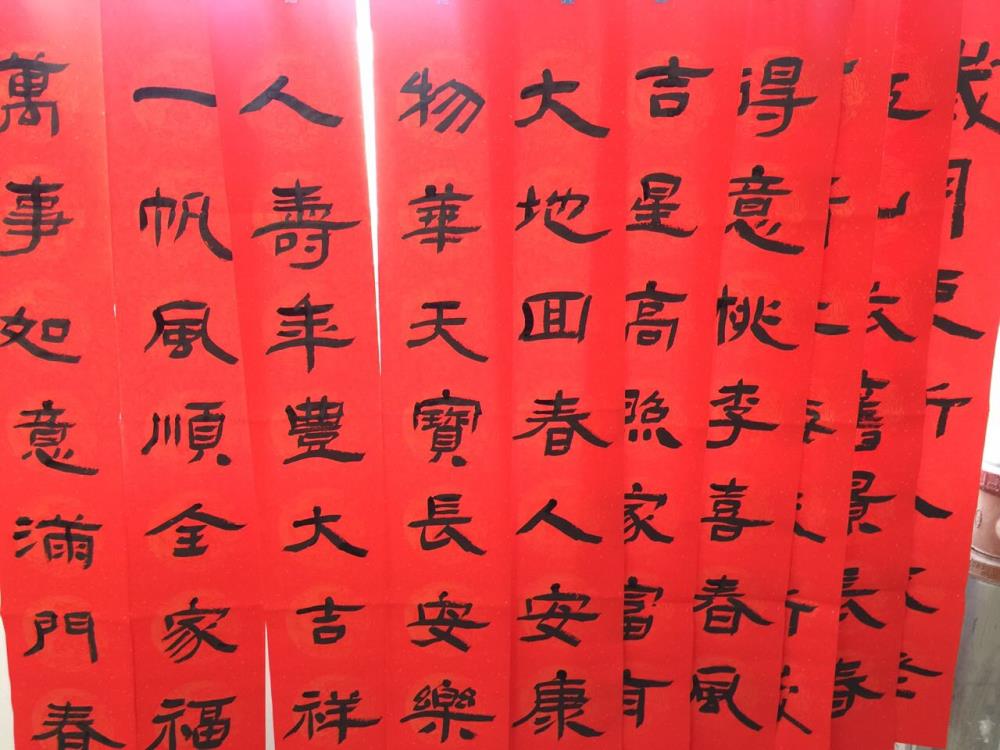 歲
舊景長春
得意桃李喜春風
吉星高照家富有
大地回春人安康
物華天寶長安樂
人壽年豐大吉祥
一帆風順全家福
萬事如意滿門春